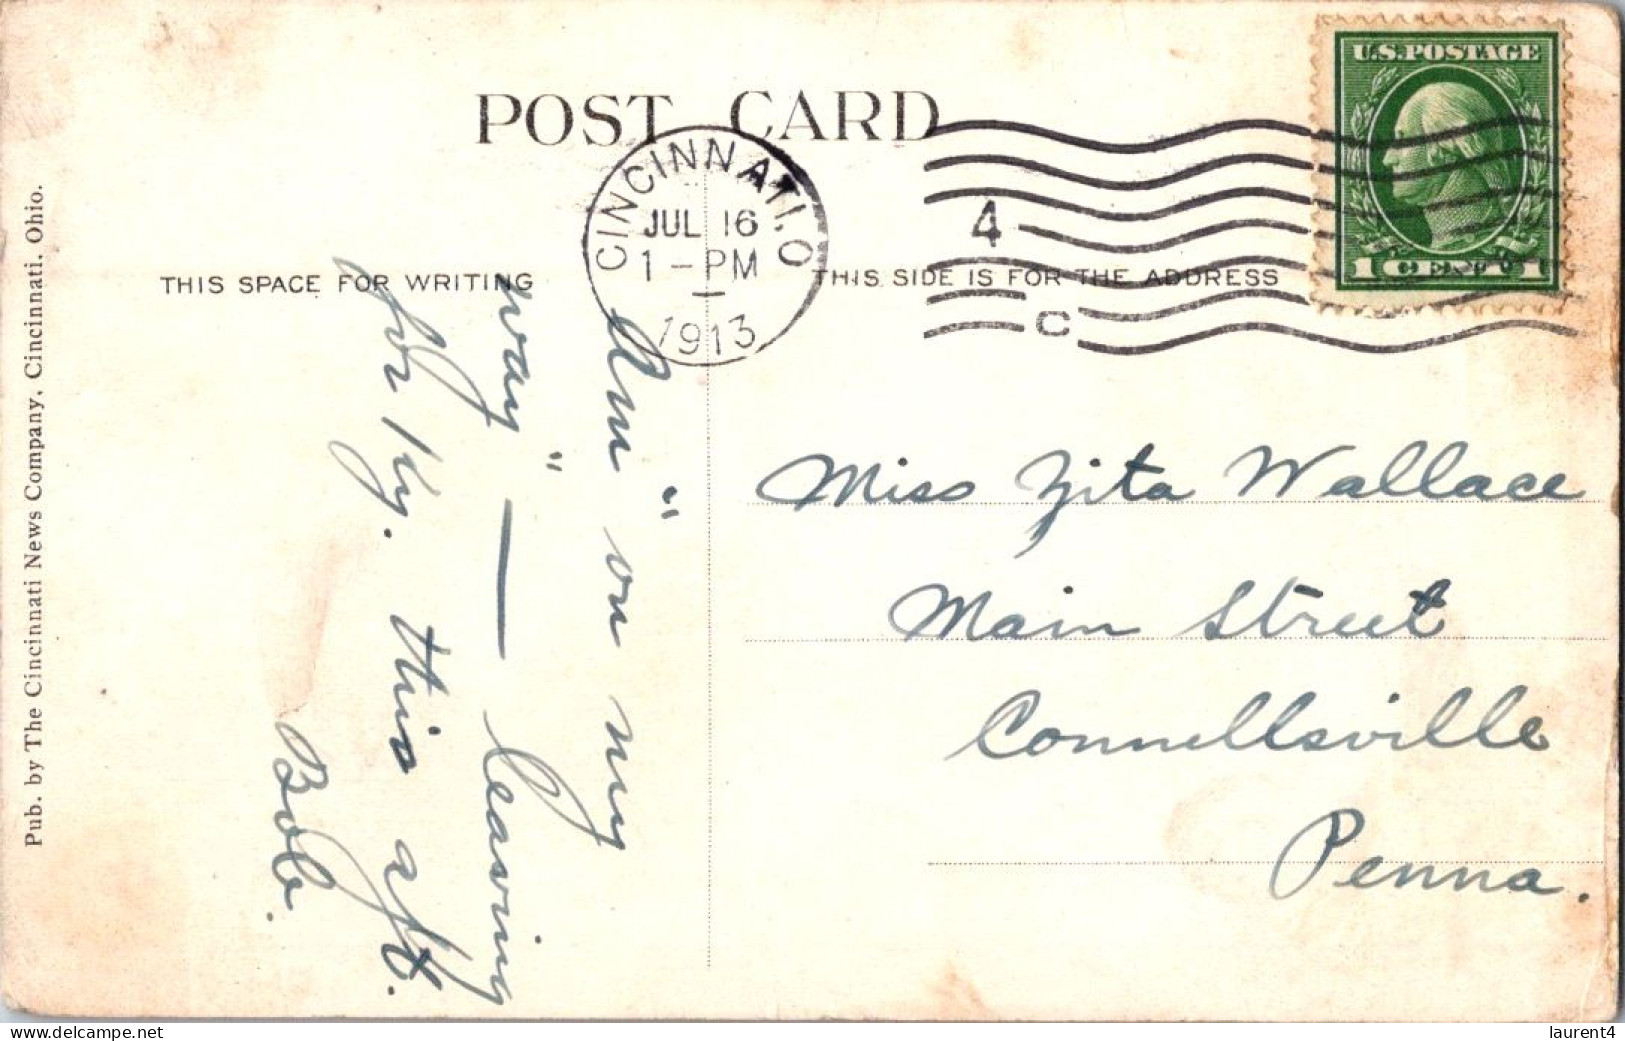 POST CARD
U.S. POSTAGE
1 CENT 1
CINCINNATI, O
JUL 16
1 - PM
1913
4
C
THIS SPACE FOR WRITING
THIS SIDE IS FOR THE ADDRESS
Am "on my
way" — leaving
for Ky. this aft.
Bob.
Miss Zita Wallace
Main Street
Connellsville
Penna.
Pub. by The Cincinnati News Company, Cincinnati, Ohio.
www.delcampe.net
laurent4